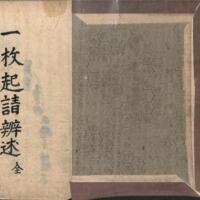 一枚起請辨述 全